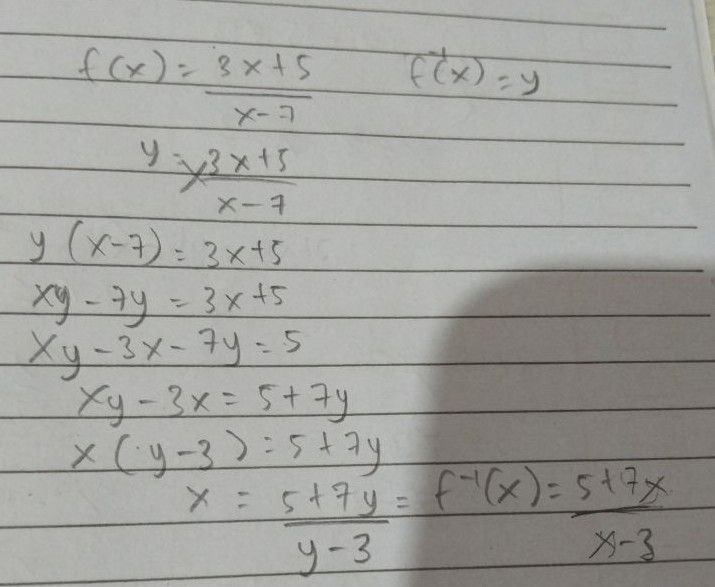 f(x) = 3x+5/x-7 f⁻¹(x) = y
y = 3x+5/x-7
y(x-7) = 3x+5
xy - 7y = 3x+5
xy - 3x - 7y = 5
xy - 3x = 5+7y
x(y-3) = 5+7y
x = 5+7y/y-3 = f⁻¹(x) = 5+7x/x-3